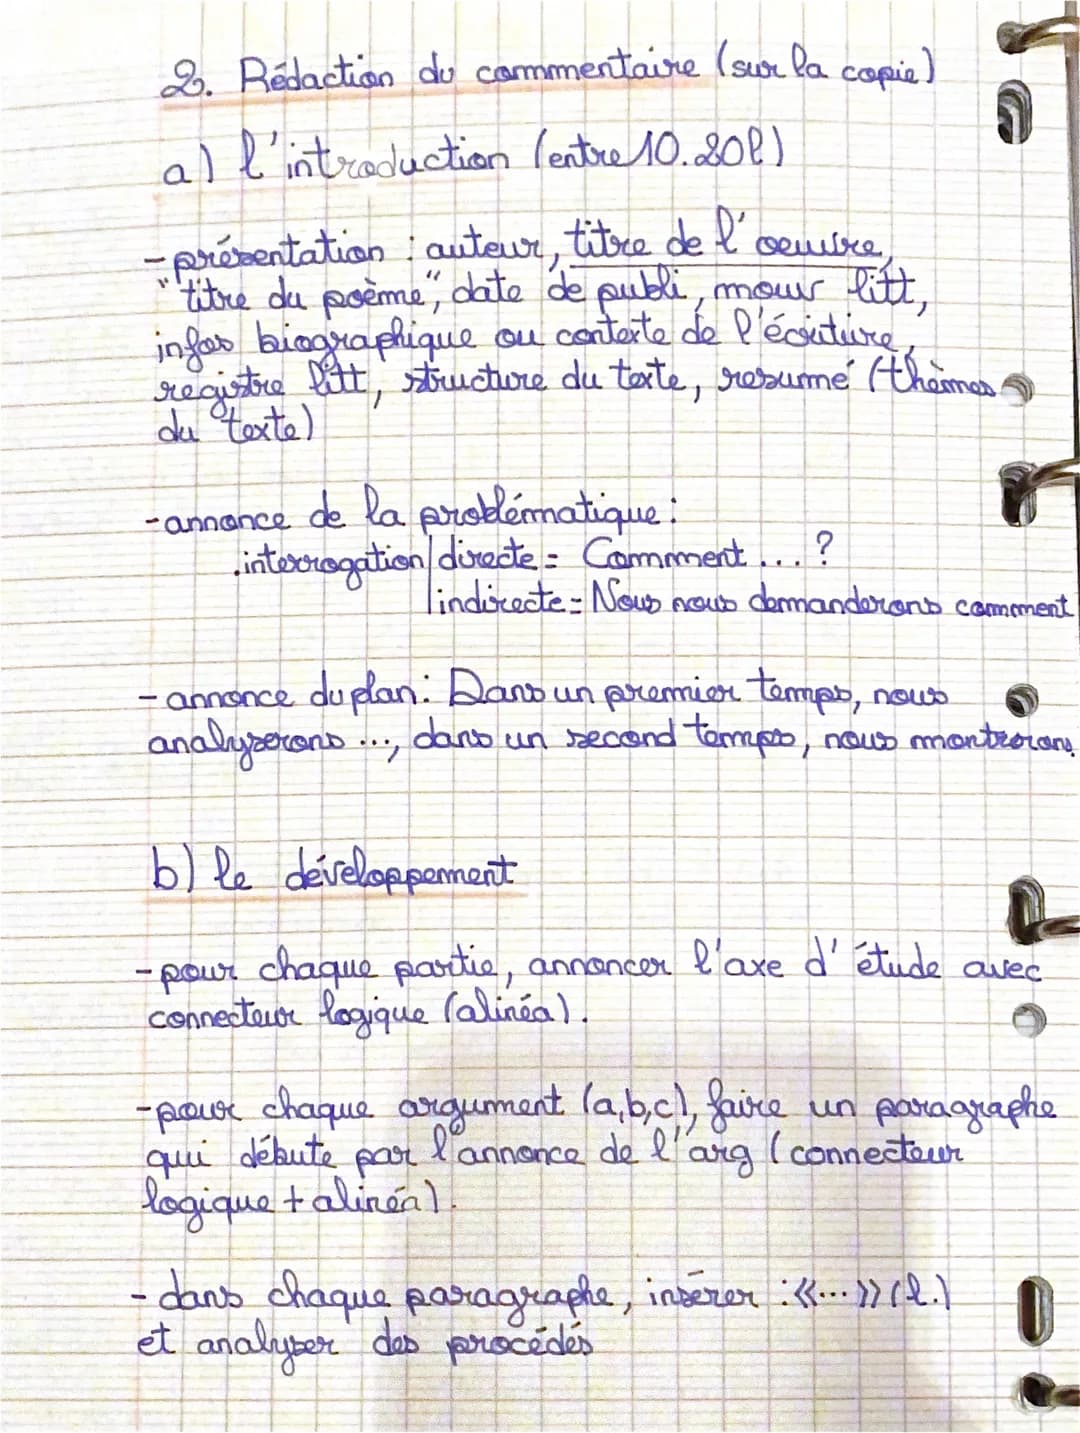 2. Rédaction du commentaire (sur la copie)
a) l'introduction (entre 10.20l)
- présentation : auteur, titre de l'oeuvre,
"titre du poème", date de publi, mouv litt,
infos biographique ou contexte de l'écriture,
registre litt, structure du texte, resumé (thèmes
du texte)
- annonce de la problématique :
. interrogation | directe = Comment ... ?
| indirecte = Nous nous demanderons comment
- annonce du plan : Dans un premier temps, nous
analyserons ..., dans un second temps, nous montrerons
b) le développement
- pour chaque partie, annoncer l'axe d'étude avec
connecteur logique (alinéa).
- pour chaque argument (a,b,c), faire un paragraphe
qui débute par l'annonce de l'arg (connecteur
logique + alinéa).
- dans chaque paragraphe, insérer : «...» (l.)
et analyser des procédés